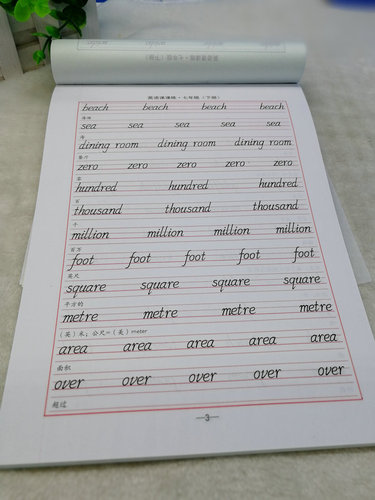 英语课课练·七年级(下册)
beach beach beach beach
海滩
sea sea sea sea sea
海
dining room dining room dining room
餐厅
zero zero zero zero zero
零
hundred hundred hundred
百
thousand thousand thousand
千
million million million million
百万
foot foot foot foot foot
英尺
square square square square
平方的
metre metre metre metre
(英)米;公尺=(美)meter
area area area area area
面积
over over over over over
超过
3